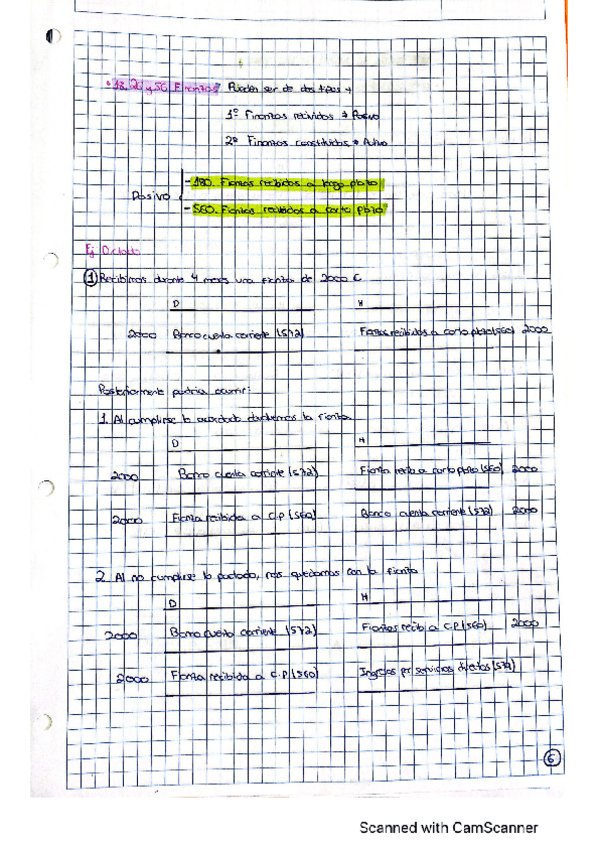 "18, 26 y 56 Fianzas" Pueden ser de dos tipos →
1º Fianzas recibidas → Pasivo
2º Fianzas constituidas → Activo
Pasivo
- 180. Fianzas recibidas a largo plazo
- 560. Fianzas recibidas a corto plazo
Ej
① Recibimos durante 4 meses una fianza de 2000 €
D H
2000 Banco cuenta corriente (572) Fianzas recibidas a corto plazo (560) 2000
Posteriormente podría ocurrir:
1. Al cumplirse lo acordado devolvemos la fianza
D H
2000 Banco cuenta corriente (572) Fianza recib a corto plazo (560) 2000
2000 Fianza recibida a C.P (560) Banco cuenta corriente (572) 2000
2. Al no cumplirse lo pactado, nos quedamos con la fianza
D H
2000 Banco cuenta corriente (572) Fianzas recib a C.P (560) 2000
2000 Fianza recibida a C.P. (560) Ingresos por servicios
⑥
Scanned with CamScanner